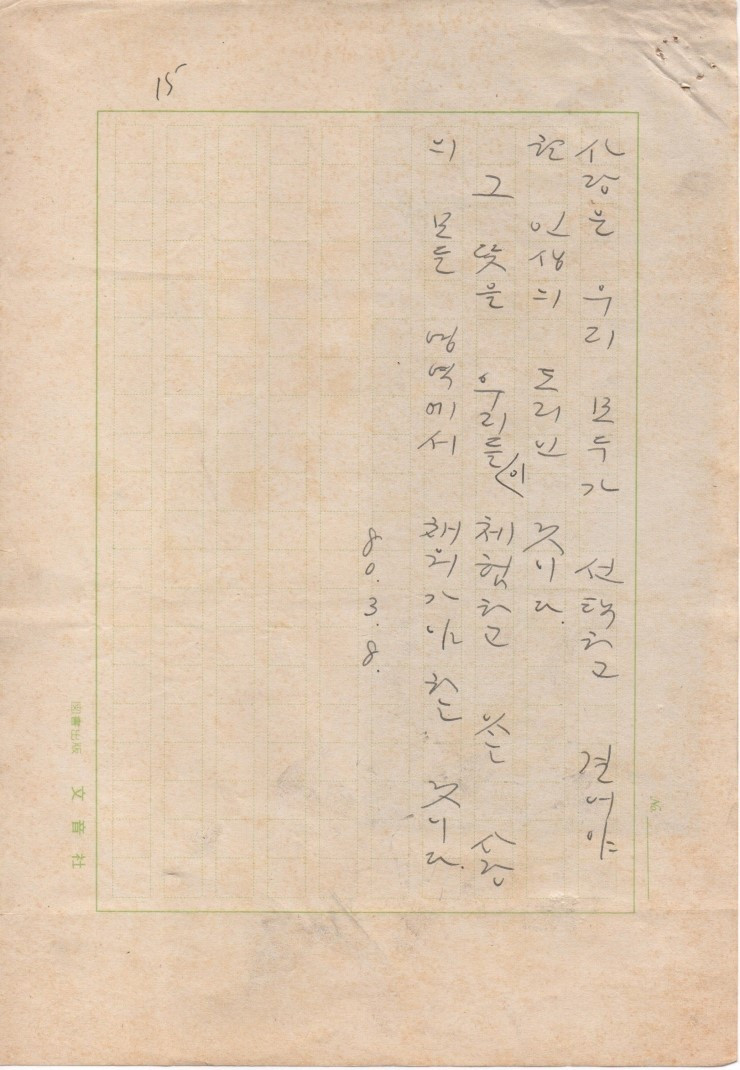 사랑은 우리 모두가 선택하고 걸어야
할 인생의 도리인 것이다.
그 뜻을 우리들이 체험하고 있는 사랑
의 모든 영역에서 채워가야 하는 것이다.
80. 3. 8.
15
No.
圖書出版 文音社